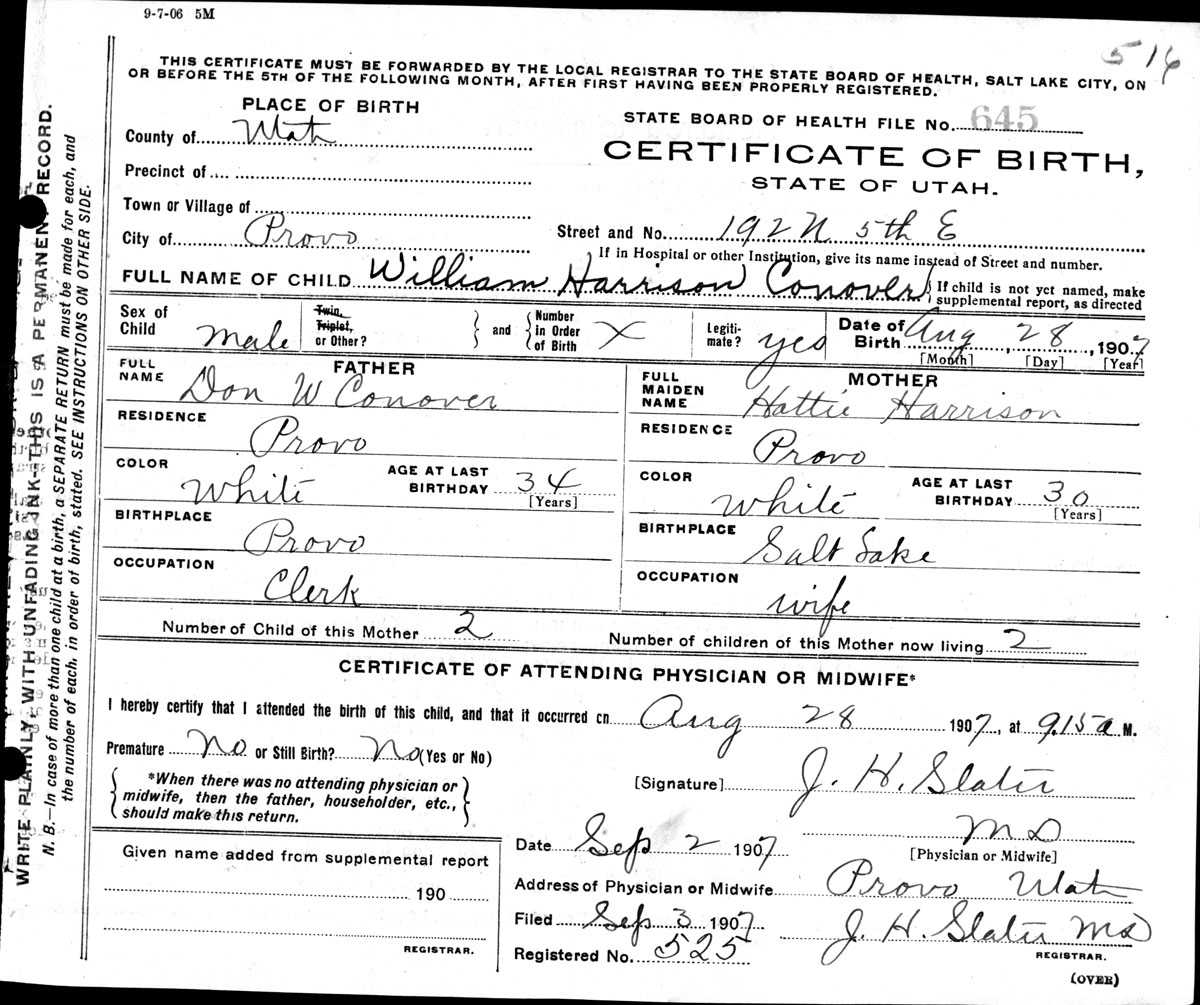 9-7-06 5M
516
THIS CERTIFICATE MUST BE FORWARDED BY THE LOCAL REGISTRAR TO THE STATE BOARD OF HEALTH, SALT LAKE CITY, ON
OR BEFORE THE 5TH OF THE FOLLOWING MONTH, AFTER FIRST HAVING BEEN PROPERLY REGISTERED.
PLACE OF BIRTH
STATE BOARD OF HEALTH FILE No. 645
County of Utah
CERTIFICATE OF BIRTH,
STATE OF UTAH.
Precinct of
Town or Village of
City of Provo
Street and No. 192 N 5th E
If in Hospital or other Institution, give its name instead of Street and number.
FULL NAME OF CHILD William Harrison Conover
If child is not yet named, make
supplemental report, as directed
Sex of Child male
Twin, Triplet, or Other?
and Number in Order of Birth X
Legiti-mate? yes
Date of Birth Aug, 28, 1907
[Month] [Day] [Year]
FATHER
FULL NAME Don W Conover
RESIDENCE
Provo
COLOR White AGE AT LAST BIRTHDAY 34
[Years]
BIRTHPLACE
Provo
OCCUPATION
Clerk
MOTHER
FULL MAIDEN NAME Hattie Harrison
RESIDENCE
Provo
COLOR White AGE AT LAST BIRTHDAY 30
[Years]
BIRTHPLACE
Salt Lake
OCCUPATION
wife
Number of Child of this Mother 2 Number of children of this Mother now living 2
CERTIFICATE OF ATTENDING PHYSICIAN OR MIDWIFE*
I hereby certify that I attended the birth of this child, and that it occurred on Aug 28 1907, at 9.15 a M.
Premature No or Still Birth? No (Yes or No)
*When there was no attending physician or
midwife, then the father, householder, etc.,
should make this return.
[Signature] J. H. Slater
M D
[Physician or Midwife]
Date Sep 2 1907
Address of Physician or Midwife Provo Utah
Filed Sep 3 1907 J. H. Slater MD
REGISTRAR.
Registered No. 525
(OVER)
Given name added from supplemental report
190
REGISTRAR.
WRITE PLAINLY, WITH UNFADING INK—THIS IS A PERMANENT RECORD.
N. B.—In case of more than one child at a birth, a SEPARATE RETURN must be made for each, and
the number of each, in order of birth, stated. SEE INSTRUCTIONS ON OTHER SIDE.